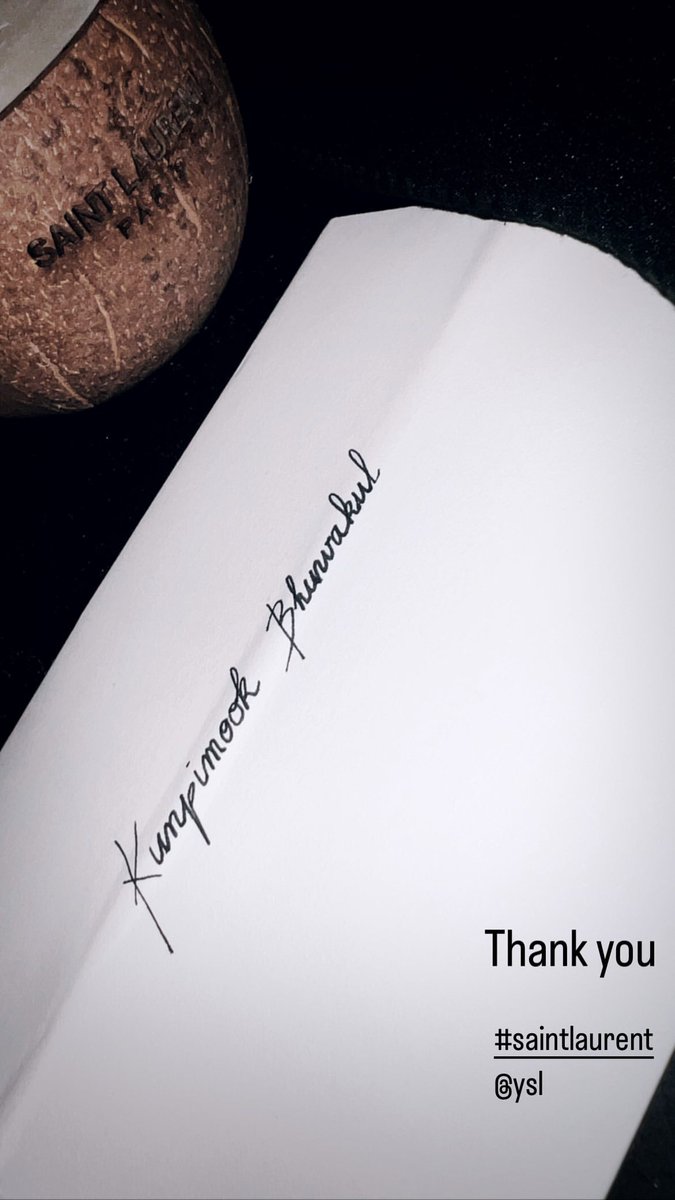 SAINT LAURENT
PARIS
Kunpimook Bhuwakul
Thank you
#saintlaurent
@ysl